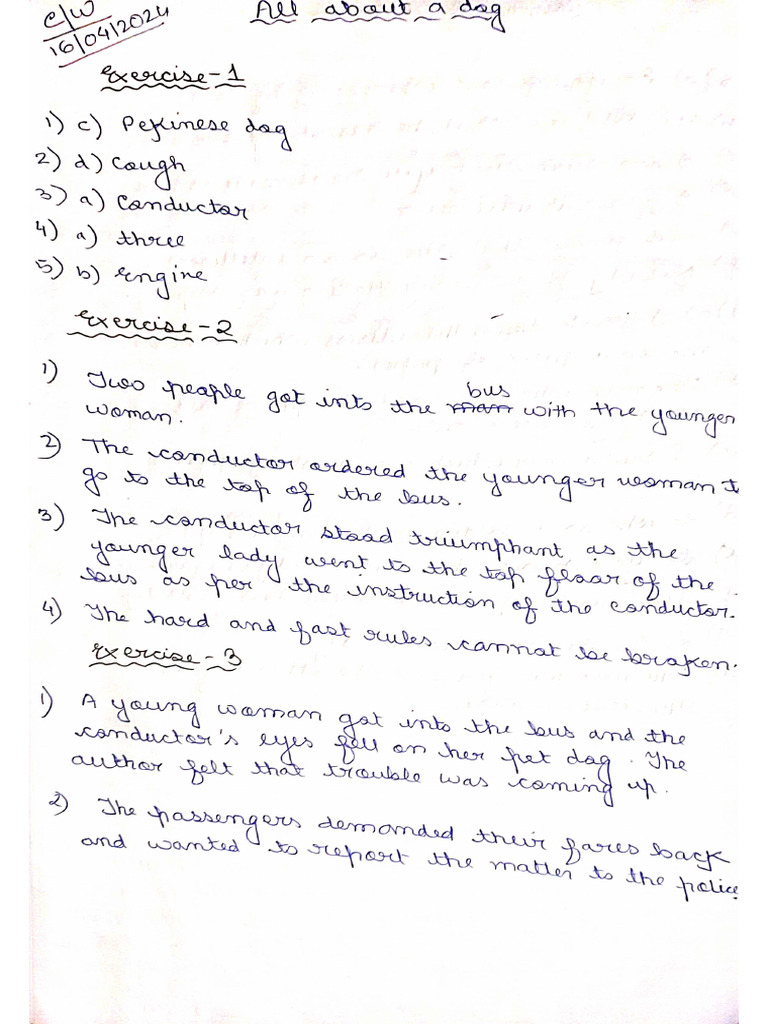 C/W
16/04/2024
All about a dog
Exercise-1
1) c) Pekinese dog
2) d) Cough
3) a) Conductor
4) a) three
5) b) Engine
Exercise-2
1) Two people got into the man bus with the younger
woman.
2) The conductor ordered the younger woman
go to the top of the bus.
3) The conductor stood triumphant as the
younger lady went to the top floor of the
bus as per the instruction of the conductor.
4) The hard and fast rules cannot be broken.
Exercise-3
1) A young woman got into the bus and the
conductor's eyes fell on her pet dog. The
author felt that trouble was coming up.
2) The passengers demanded their fares back
and wanted to report the matter to the police